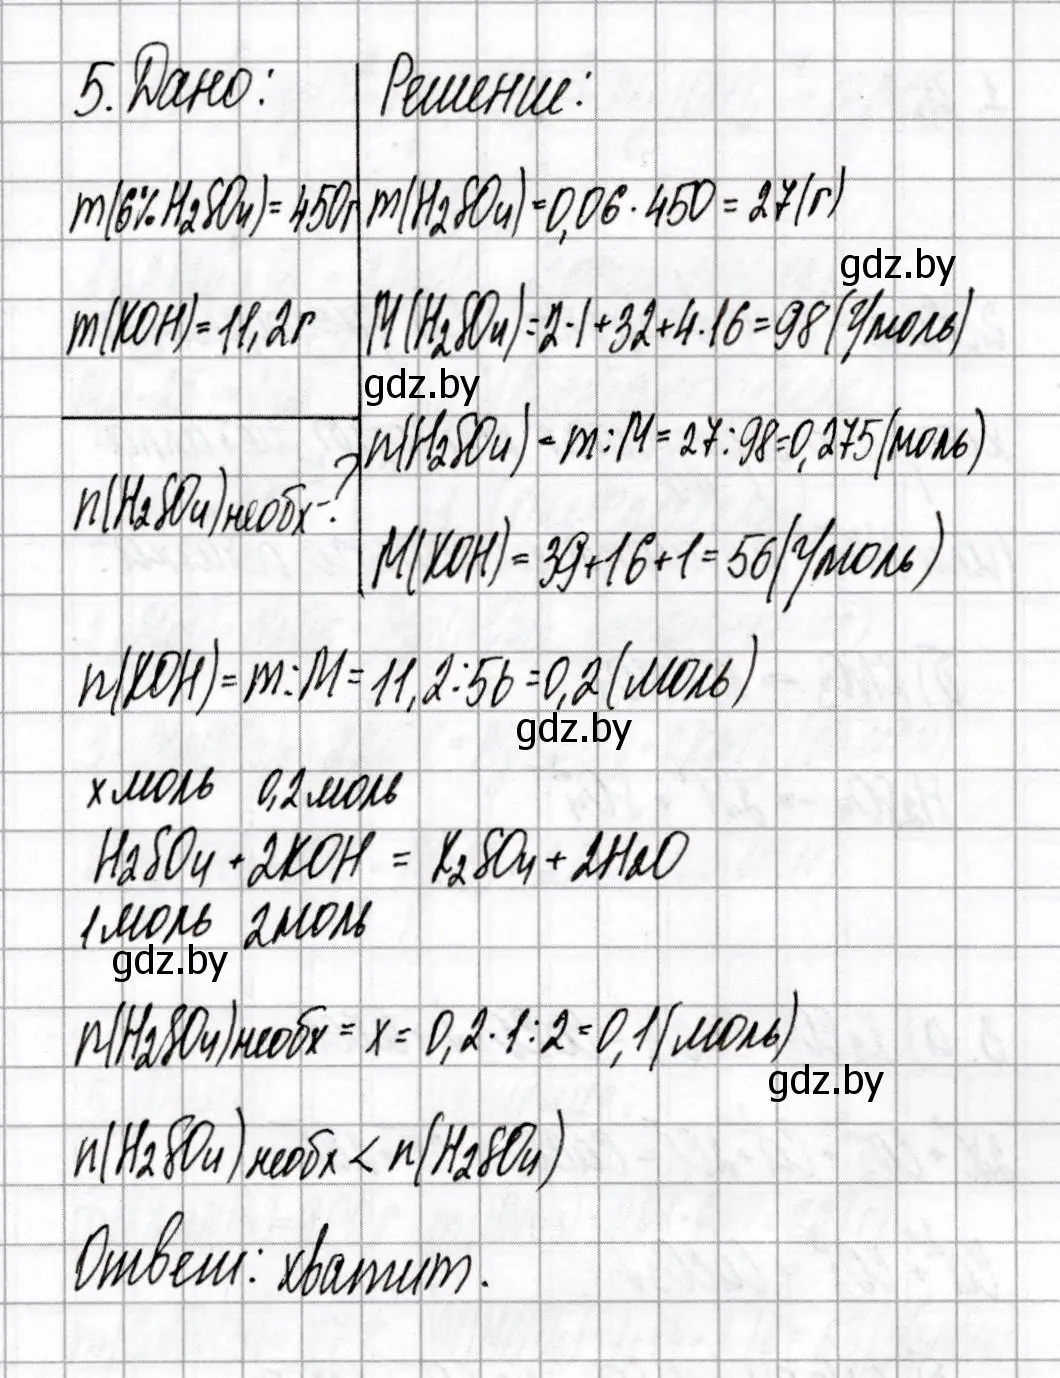 5. Дано:
Решение:
m(6% H₂SO₄) = 450г
m(H₂SO₄) = 0,06 · 450 = 27(г)
gdz.by
m(KOH) = 11,2г
M(H₂SO₄) = 2·1+32+4·16 = 98(г/моль)
gdz.by
n(H₂SO₄) - m:M = 27:98=0,275(моль)
n(H₂SO₄)необх-?
M(KOH) = 39+16+1 = 56(г/моль)
n(KOH) = m:M = 11,2:56 = 0,2(моль)
gdz.by
x моль 0,2 моль
H₂SO₄ + 2KOH = K₂SO₄ + 2H₂O
1 моль 2 моль
gdz.by
n(H₂SO₄)необх = x = 0,2 · 1:2 = 0,1(моль)
gdz.by
n(H₂SO₄)необх < n(H₂SO₄)
Ответ: хватит.